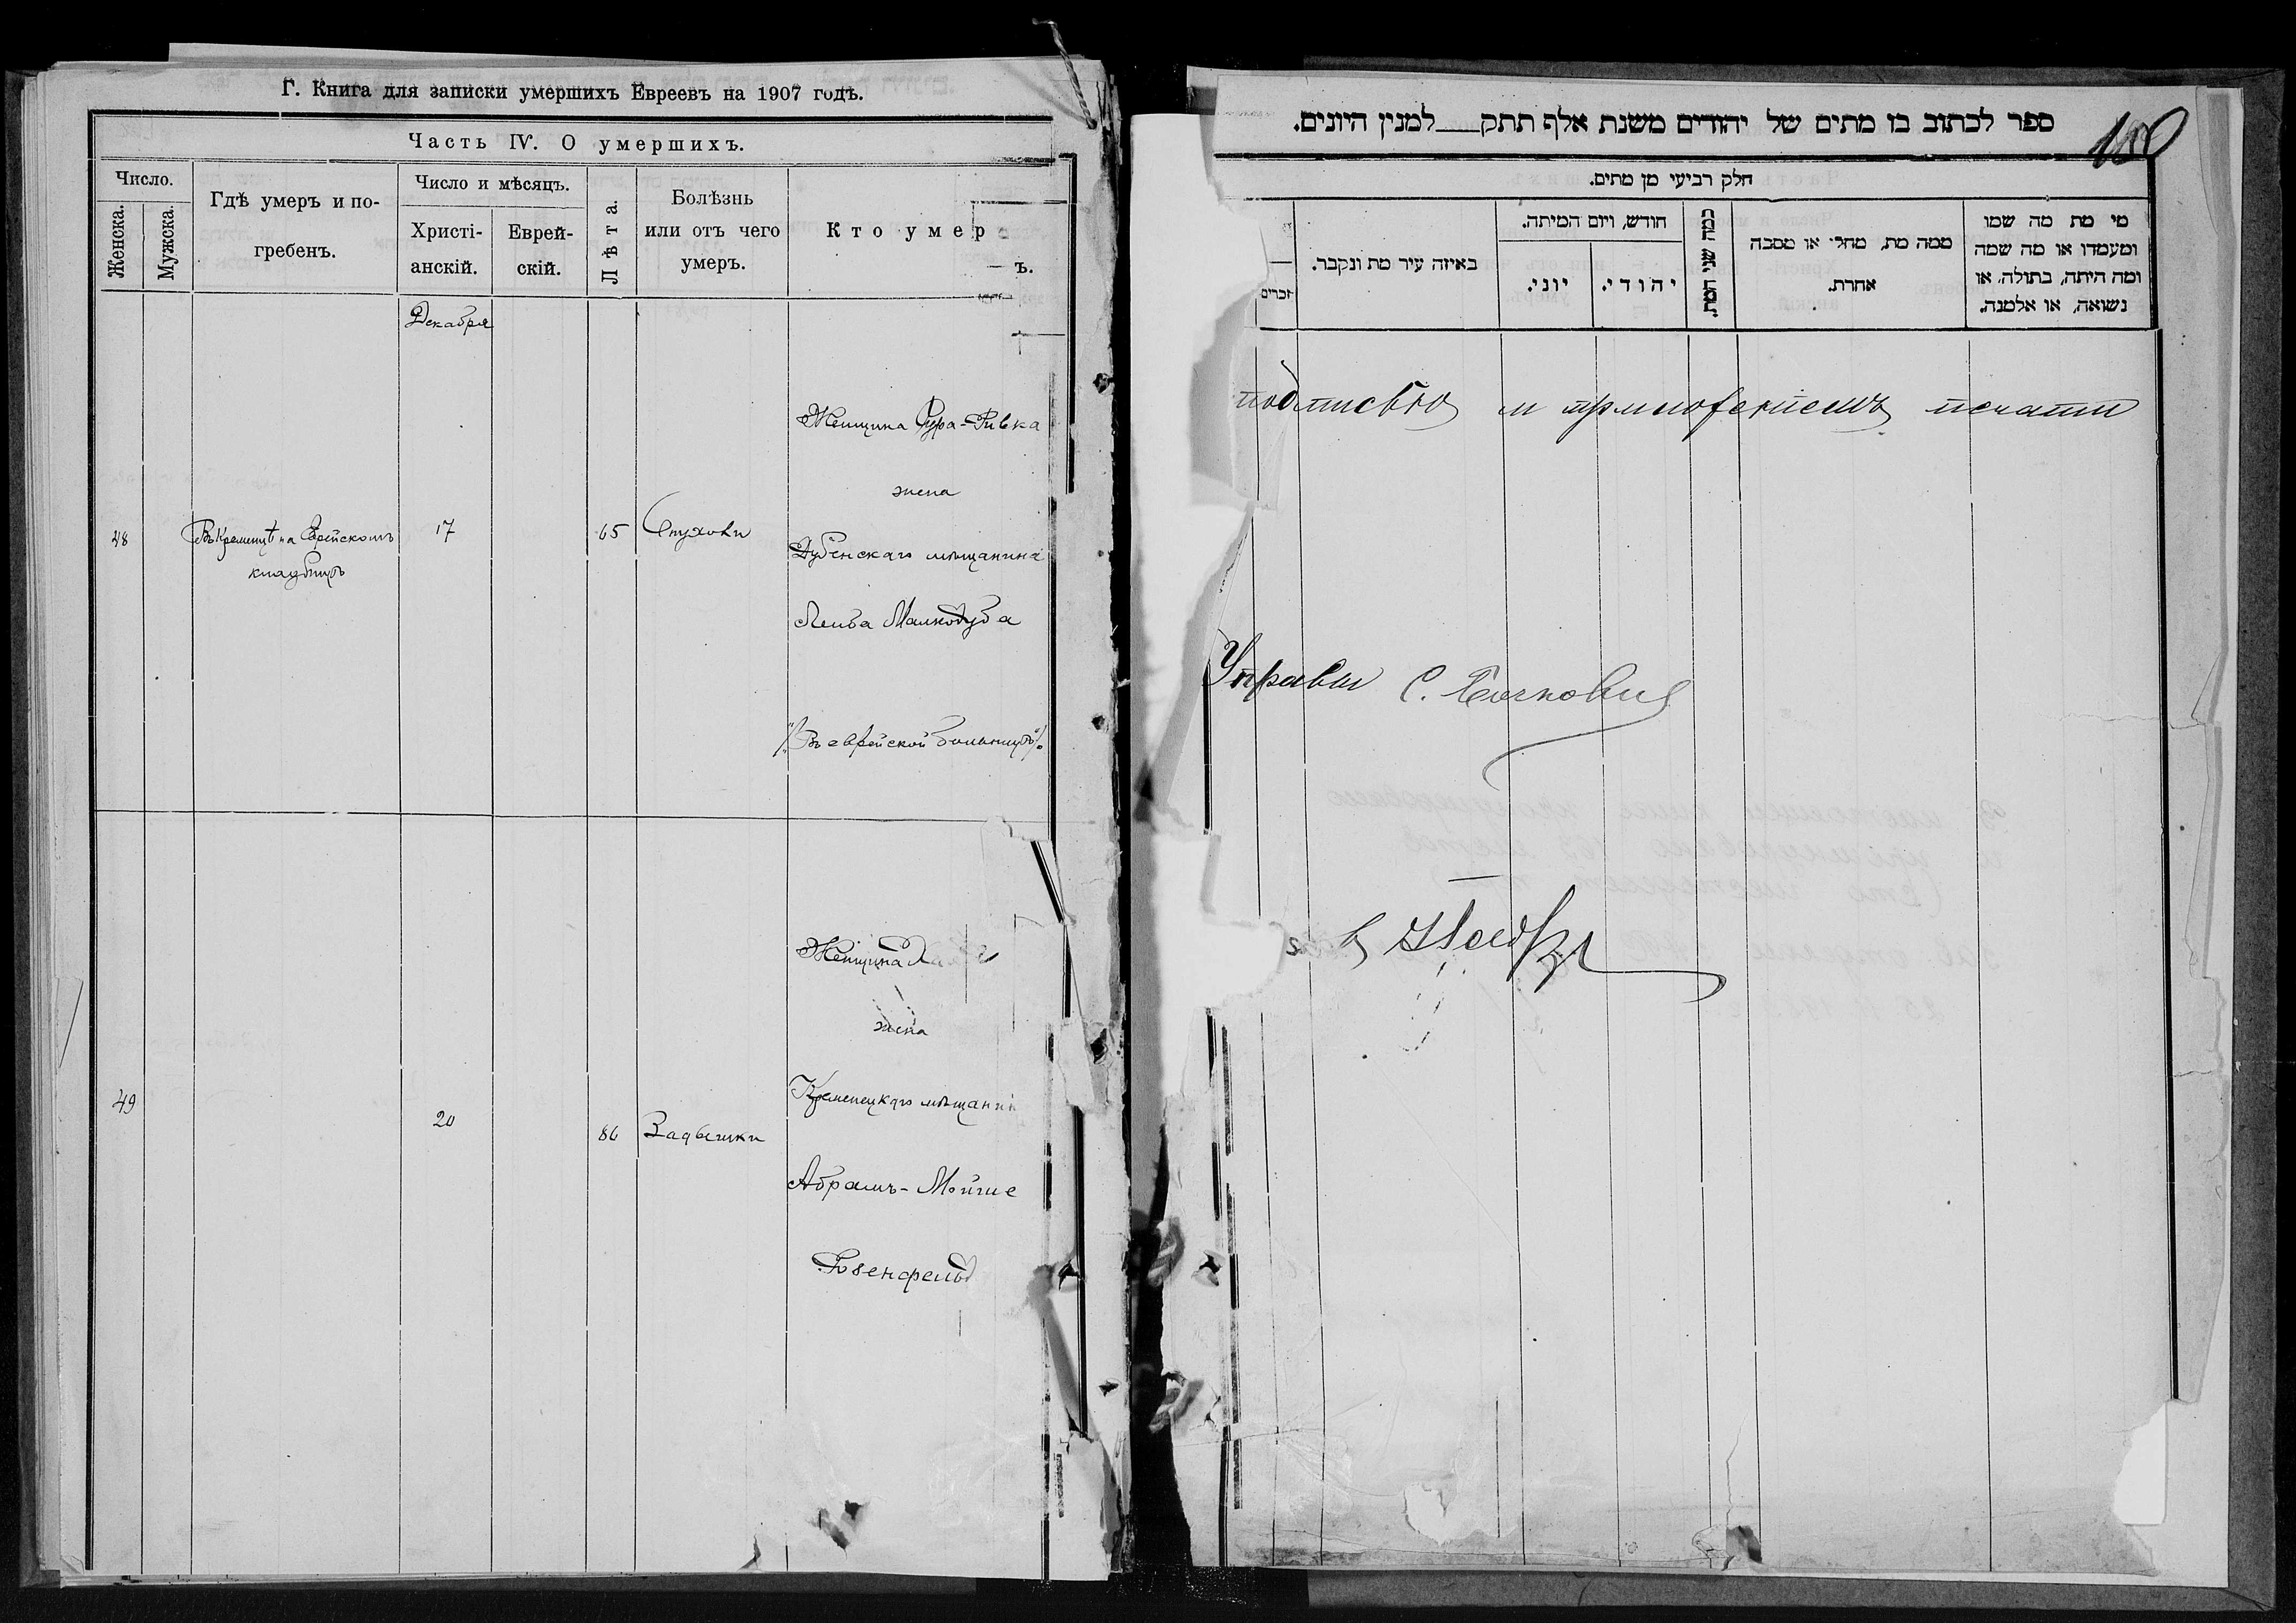 Г. Книга для записки умершихъ Евреевъ на 1907 годъ.
Часть IV. О умершихъ.
Число.
Женска.
Мужска.
Гдѣ умеръ и по-
гребенъ.
Число и мѣсяцъ.
Христі-
анскій.
Еврей-
скій.
Лѣта.
Болѣзнь
или отъ чего
умеръ.
Кто умер
ъ.
Декабря
48
Въ Кременцѣ на Еврейскомъ
кладбищѣ
17
65
Опухоли
Женщина Сура-Ривка
жена
Дубенскаго мѣщанина
Лейба
Въ еврейской больницѣ
49
20
86
Задышки
Женщина
жена
Кременецкаго мѣщанин
Абрамъ-Мойше
ספר לכתוב בו מתים של יהודים משנת אלף תתק למנין היונים.
חלק רביעי מן מתים.
זכרים
באיזה עיר מת ונקבר.
חודש, ויום המיתה.
יוני.
יהודי.
כמה שני המת.
ממה מת, מחלי או מסבה
אחרת.
מי מת מה שמו
ומעמדו או מה שמה
ומה היתה, בתולה, או
נשואה, או אלמנה.
подписью и приложеніемъ печати
Управы С.